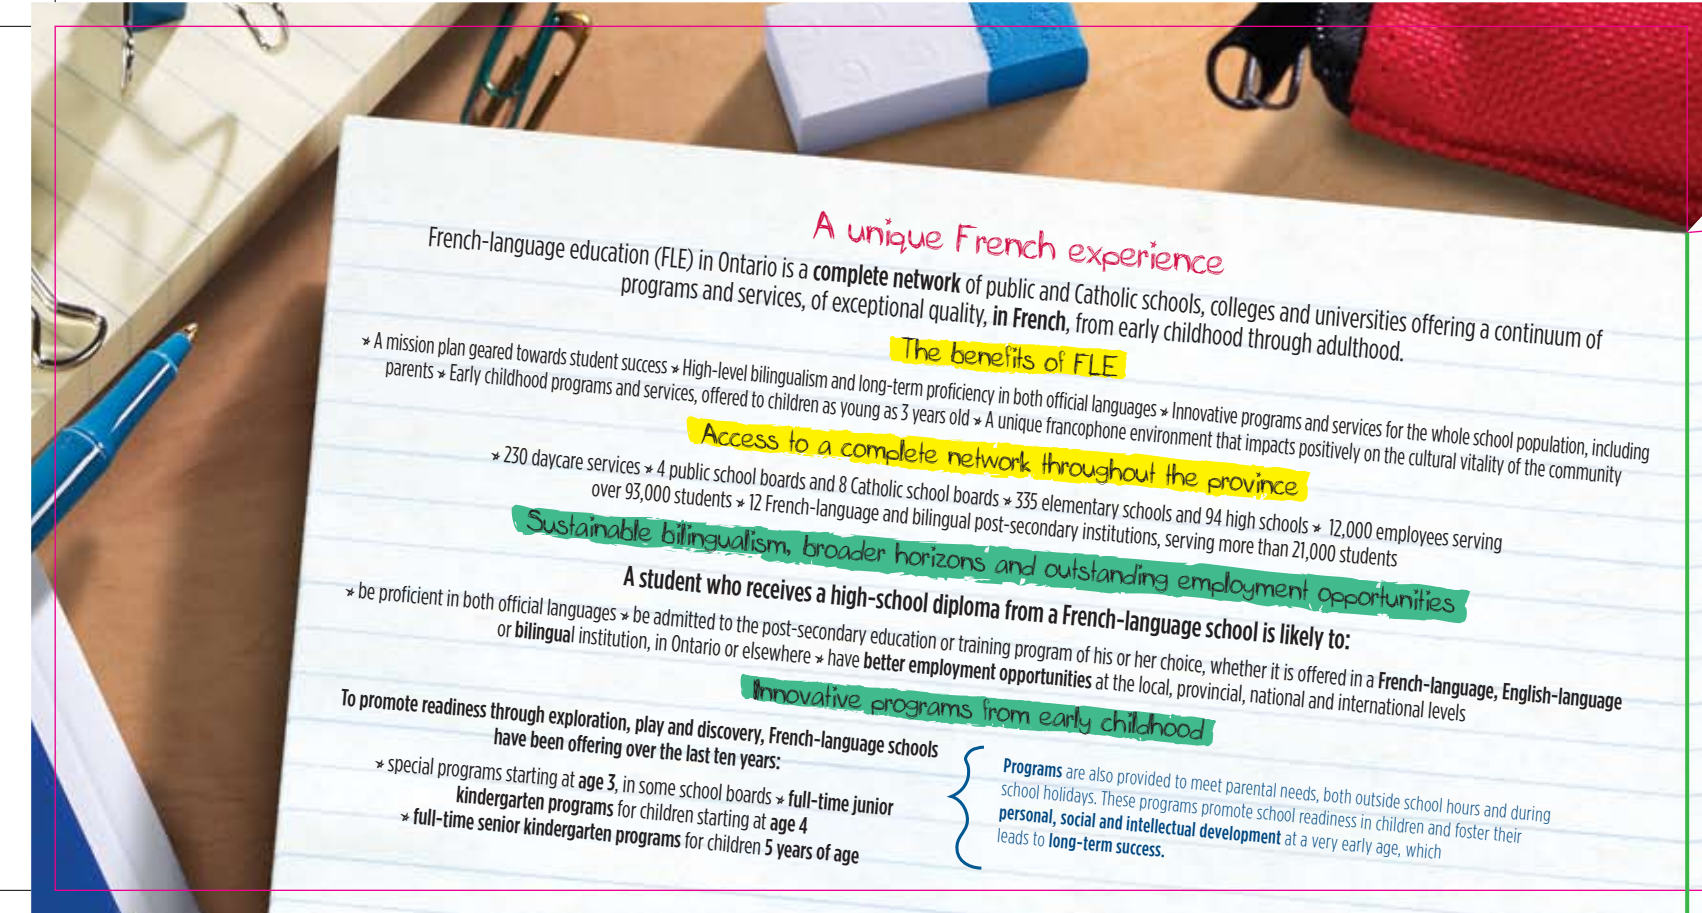 A unique French experience
French-language education (FLE) in Ontario is a complete network of public and Catholic schools, colleges and universities offering a continuum of
programs and services, of exceptional quality, in French, from early childhood through adulthood.
The benefits of FLE
* A mission plan geared towards student success * High-level bilingualism and long-term proficiency in both official languages * Innovative programs and services for the whole school population, including
parents * Early childhood programs and services, offered to children as young as 3 years old * A unique francophone environment that impacts positively on the cultural vitality of the community
Access to a complete network throughout the province
* 230 daycare services * 4 public school boards and 8 Catholic school boards * 335 elementary schools and 94 high schools * 12,000 employees serving
over 93,000 students * 12 French-language and bilingual post-secondary institutions, serving more than 21,000 students
Sustainable bilingualism, broader horizons and outstanding employment opportunities
A student who receives a high-school diploma from a French-language school is likely to:
* be proficient in both official languages * be admitted to the post-secondary education or training program of his or her choice, whether it is offered in a French-language, English-language
or bilingual institution, in Ontario or elsewhere * have better employment opportunities at the local, provincial, national and international levels
Innovative programs from early childhood
To promote readiness through exploration, play and discovery, French-language schools
have been offering over the last ten years:
* special programs starting at age 3, in some school boards * full-time junior
kindergarten programs for children starting at age 4
* full-time senior kindergarten programs for children 5 years of age
Programs are also provided to meet parental needs, both outside school hours and during
school holidays. These programs promote school readiness in children and foster their
personal, social and intellectual development at a very early age, which
leads to long-term success.